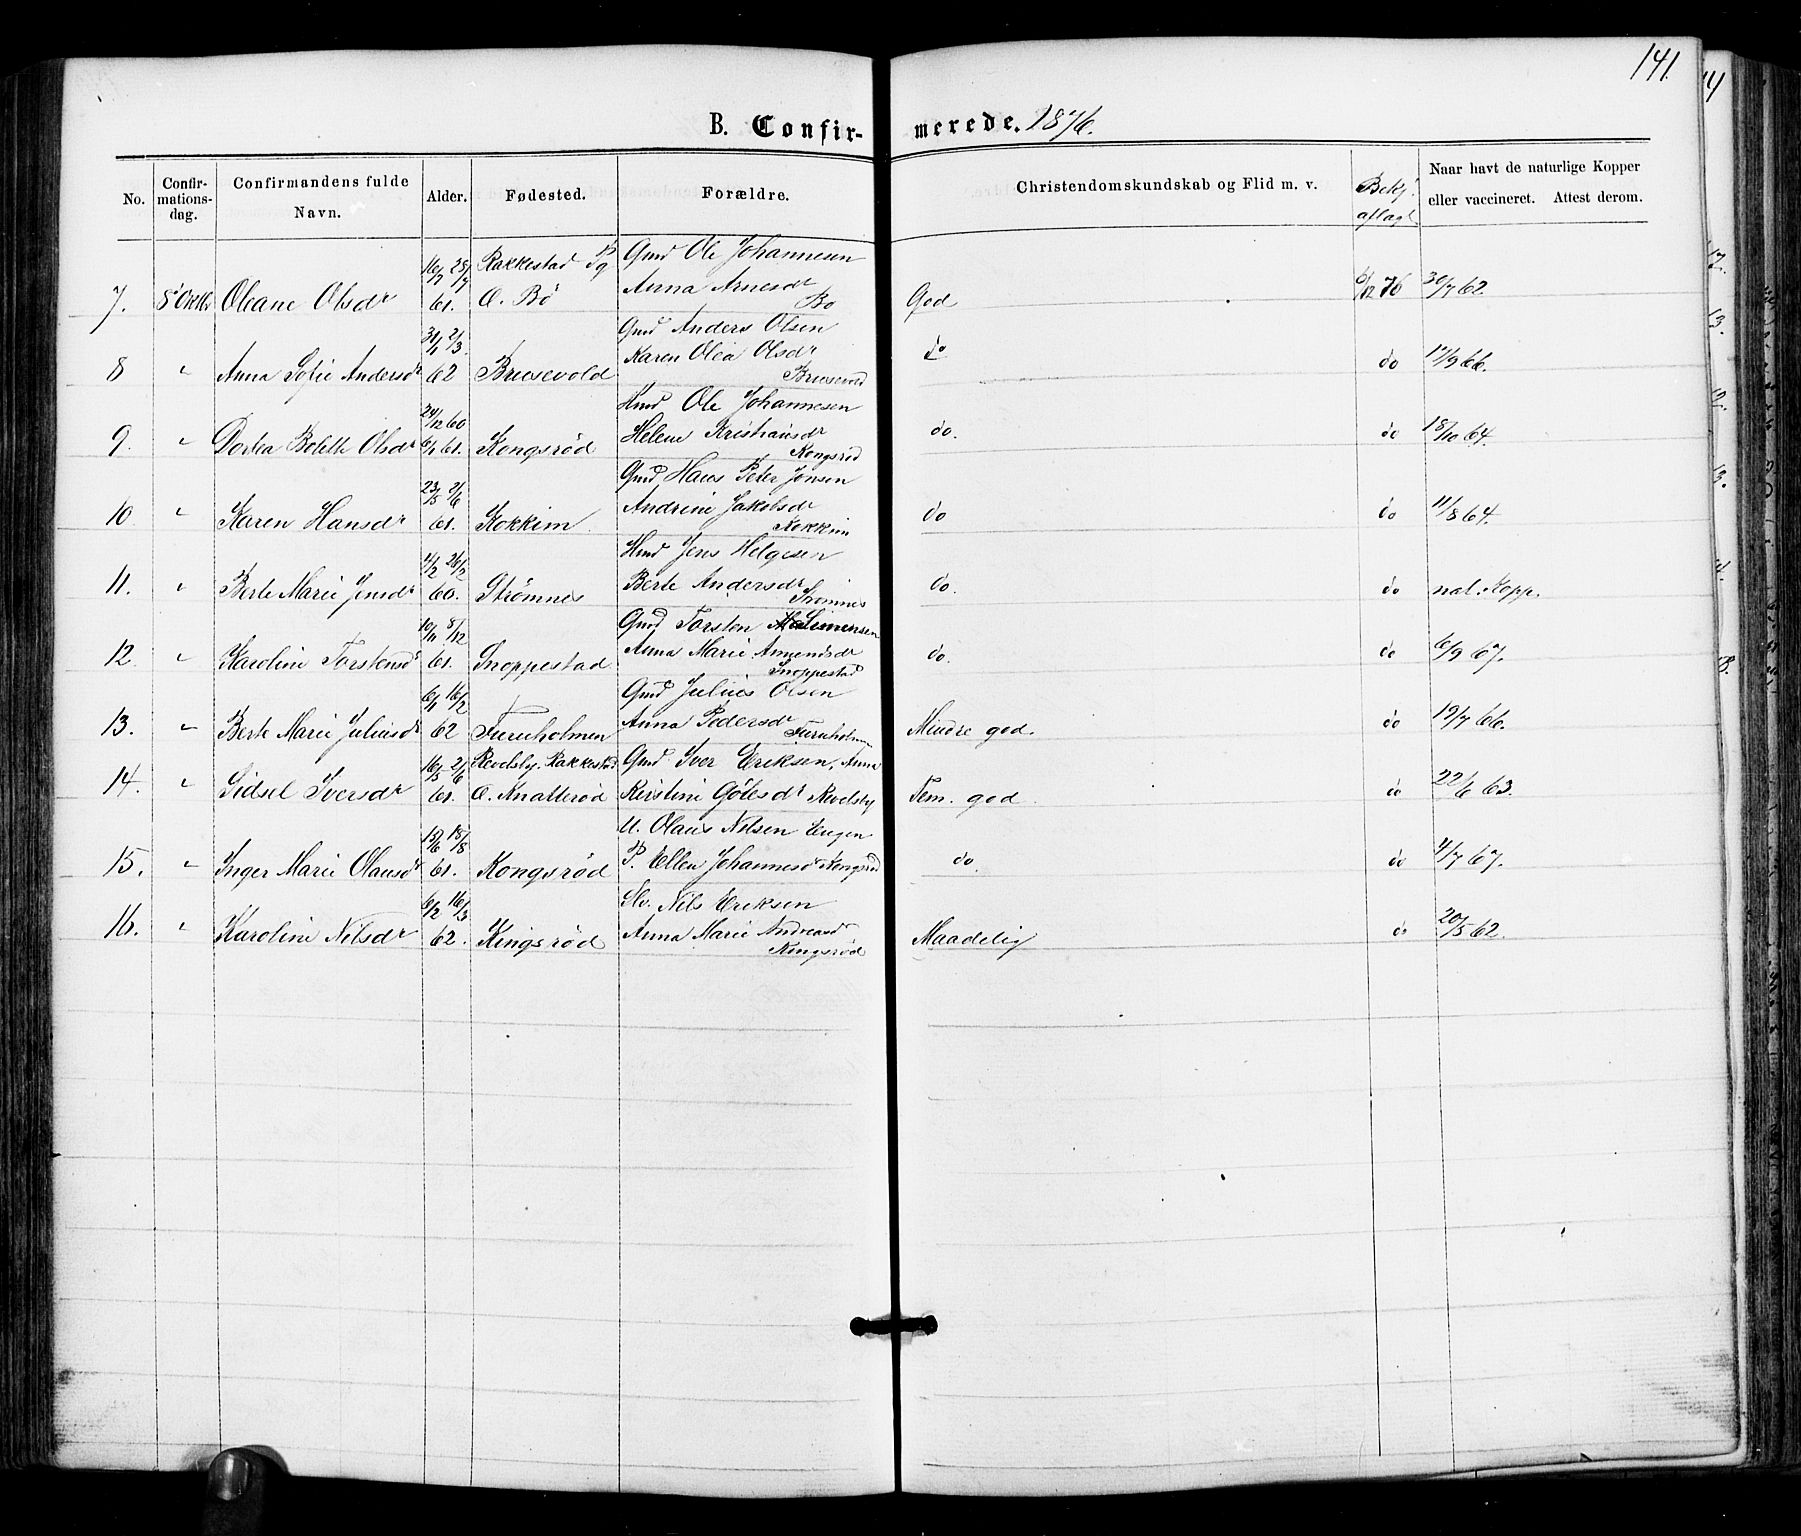 141.
B. Confir- merede. 1876.
No. Confir-mations-dag. Confirmandens fulde Navn. Alder. Fødested. Forældre. Christendomskundskab og Flid m. v. Bekj. aflagt Naar havt de naturlige Kopper eller vaccineret. Attest derom.
16/7 28/7 Rakkestad Pg Gmd Ole Johannesen
7. 8' Oktbr Oleane Olsdr 61. O. Bø Anna Arnesdr Bø God 6/12 76 30/7 62.
31/1 2/3 Gmd Anders Olsen
8 " Anna Sofie Andersdr 62 Brusevold Karen Olea Olsdr Brusevold do do 12/9 66.
24/12 60 Hmd Ole Johannesen
9. " Dortea Bolette Olsdr 6/1 61. Kongsrød Helene Kristiansdr Kongsrød do. do 18/10 64.
23/5 2/6 Gmd Hans Peter Jonsen
10 " Karen Hansdr 61. Kokkim Andrine Jakobsdr Kokkim do do 11/8 64.
4/2 26/2 Hmd Jens Helgesen
11. " Berte Marie Jensdr 60. Strømnes Berte Andersdr Strømnes do. do nat. Kopp.
10/11 8/12 Gmd Torsten Simensen
12. " Karoline Torstensdr 61. Snoppestad Anna Marie Amundsdr Snoppestad do. do 6/9 67.
6/1 16/2 Gmd Julius Olsen
13. " Berte Marie Juliusdr 62 Furuholmen Anna Pedersdr Furuholmen Mindre god. do 19/7 66.
16/5 2/6 Revelsby. Rakkestad Gmd Iver Eriksen, Anna
14. " Sidsel Iversdr 61. O. Knatterød Kirstine Götesdr Revelsby Tem. god do 22/6 63.
18/6 18/8 U. Olaus Nilsen Eugen
15. " Inger Marie Olausdr 61. Kongsrød P. Ellen Johannesdr Kongsrød do. do 4/7 67.
6/2 16/3 Slv. Nils Eriksen
16. " Karoline Nilsdr 62. Kingsrød Anna Marie Andreasdr Kingsrød Maadelig do 20/5 62.